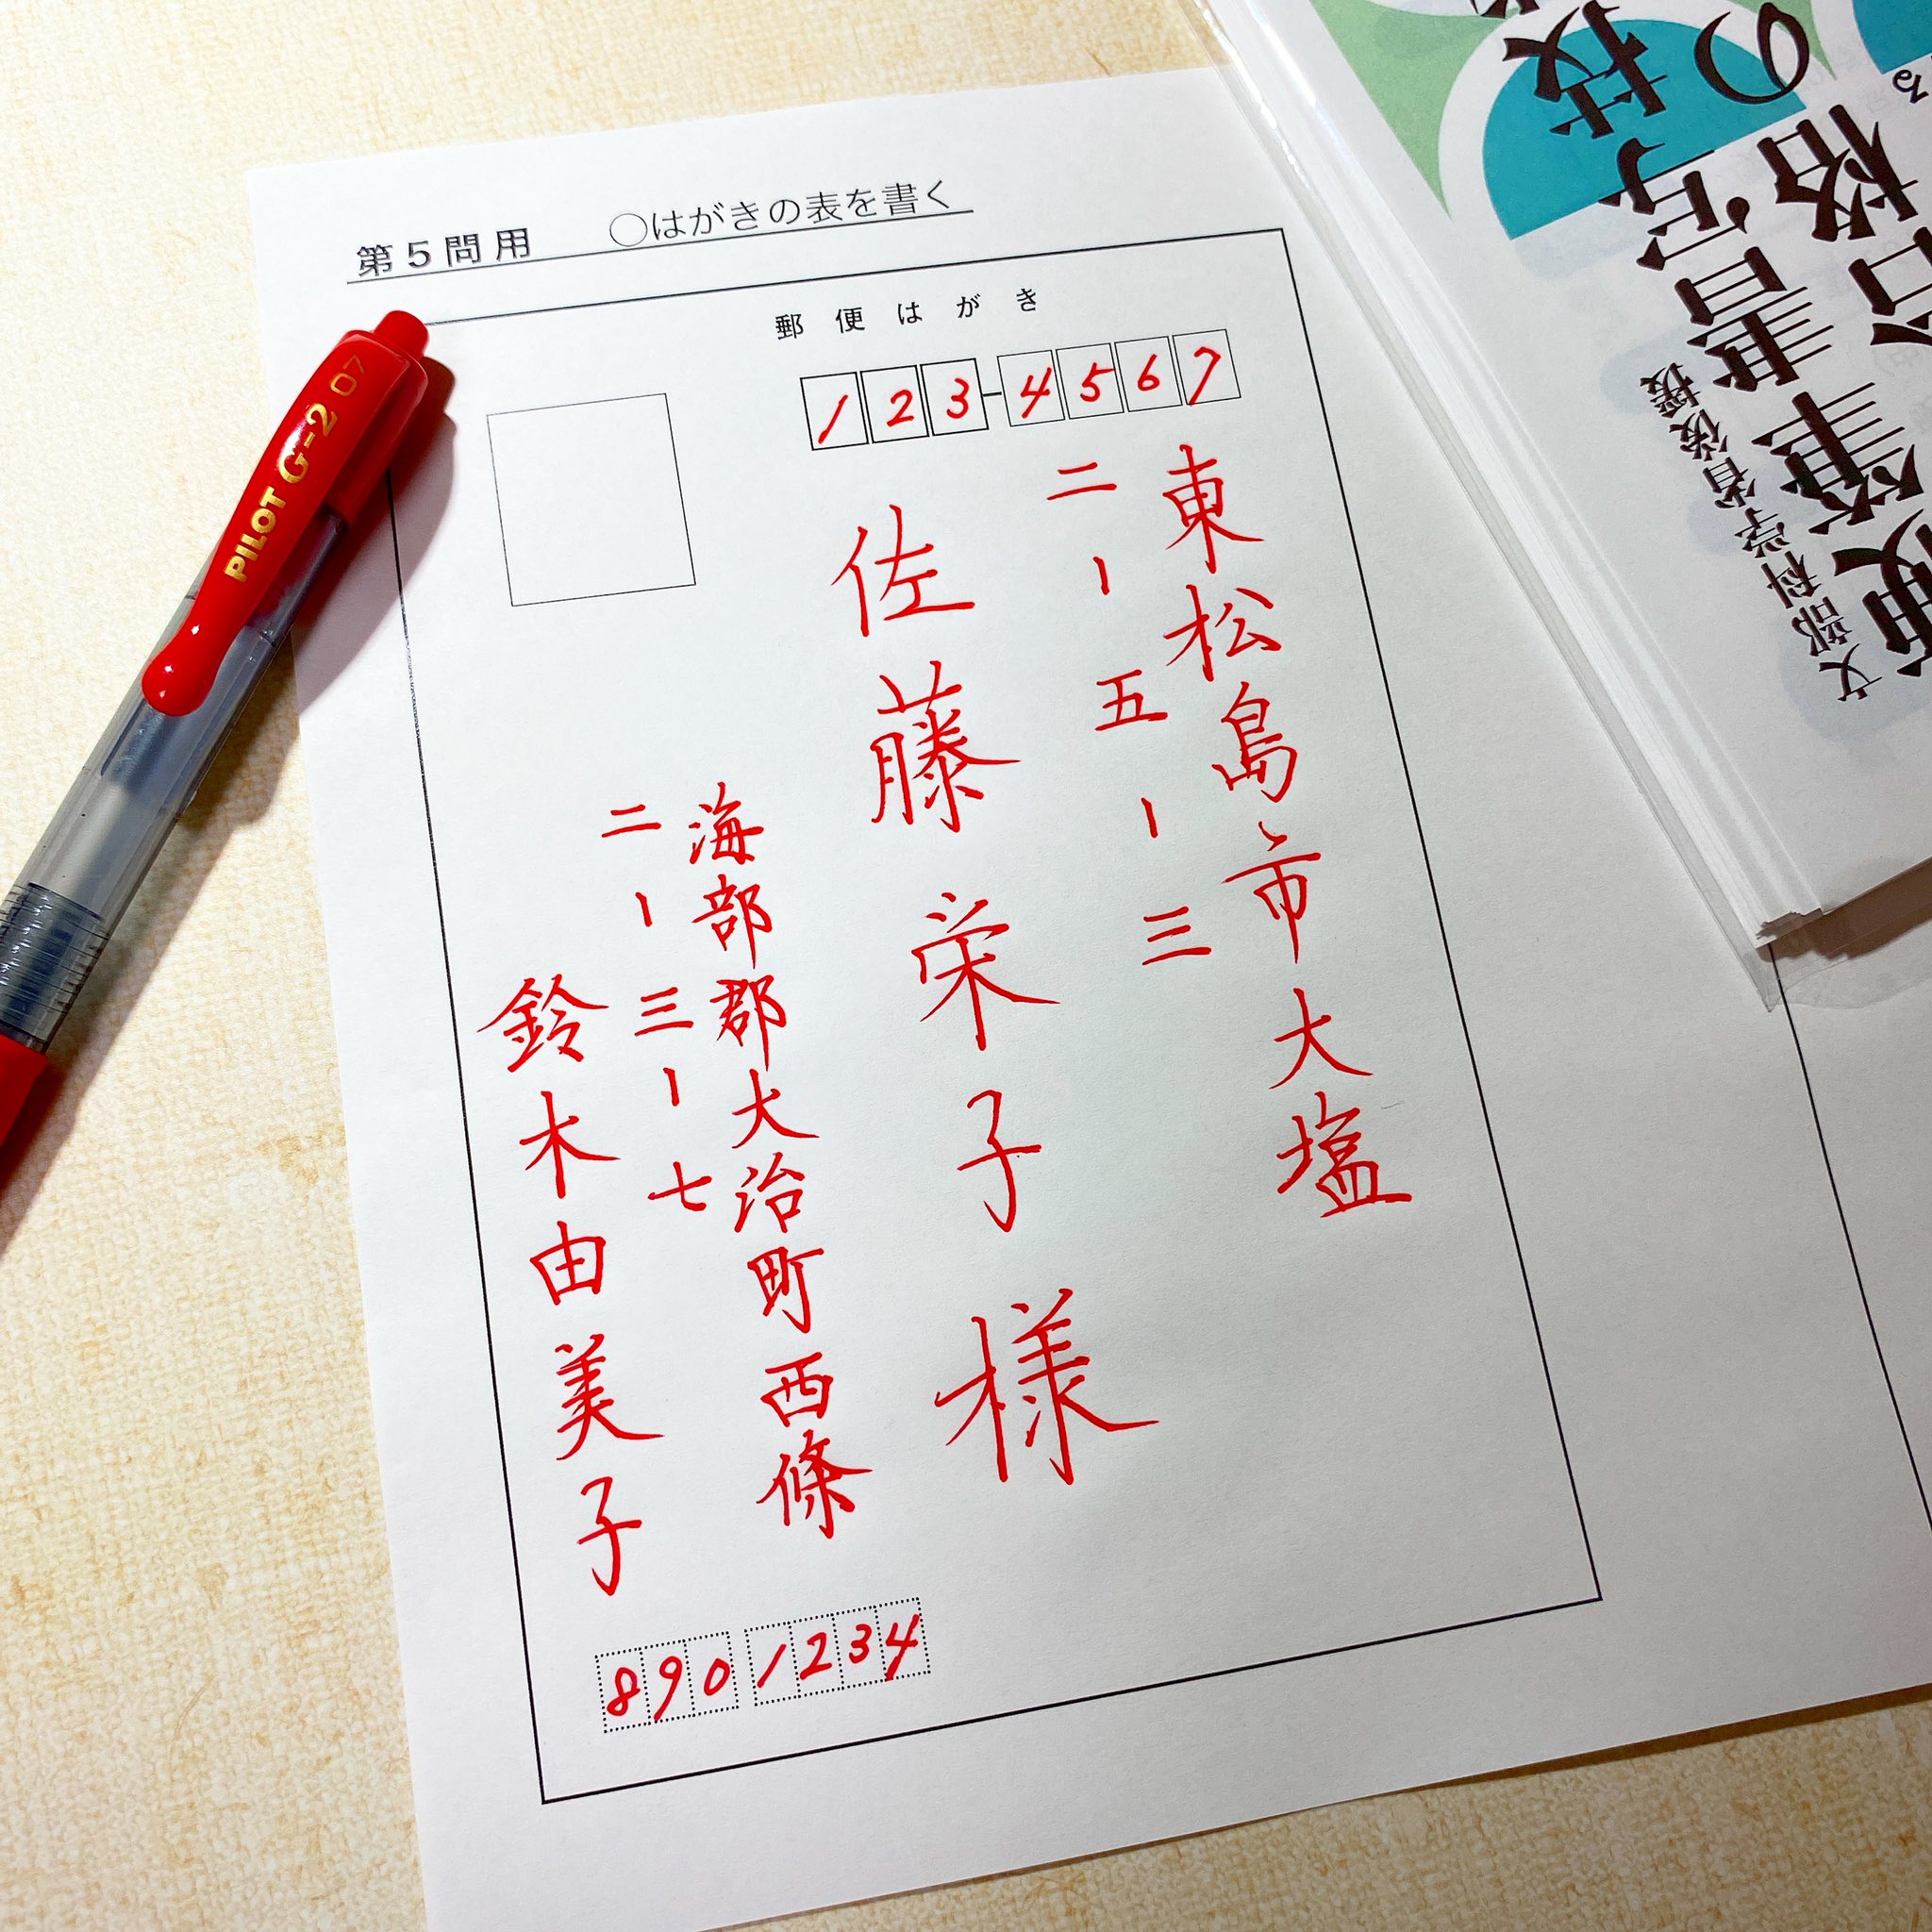 第5問用 ○はがきの表を書く
郵便はがき
123-4567
東松島市大塩
二ー五ー三
佐藤栄子様
海部郡大治町西條
二ー三ー七
鈴木由美子
890 1234
PILOT G-2 07
文部科学省後援
硬筆書写技
の
合格
る